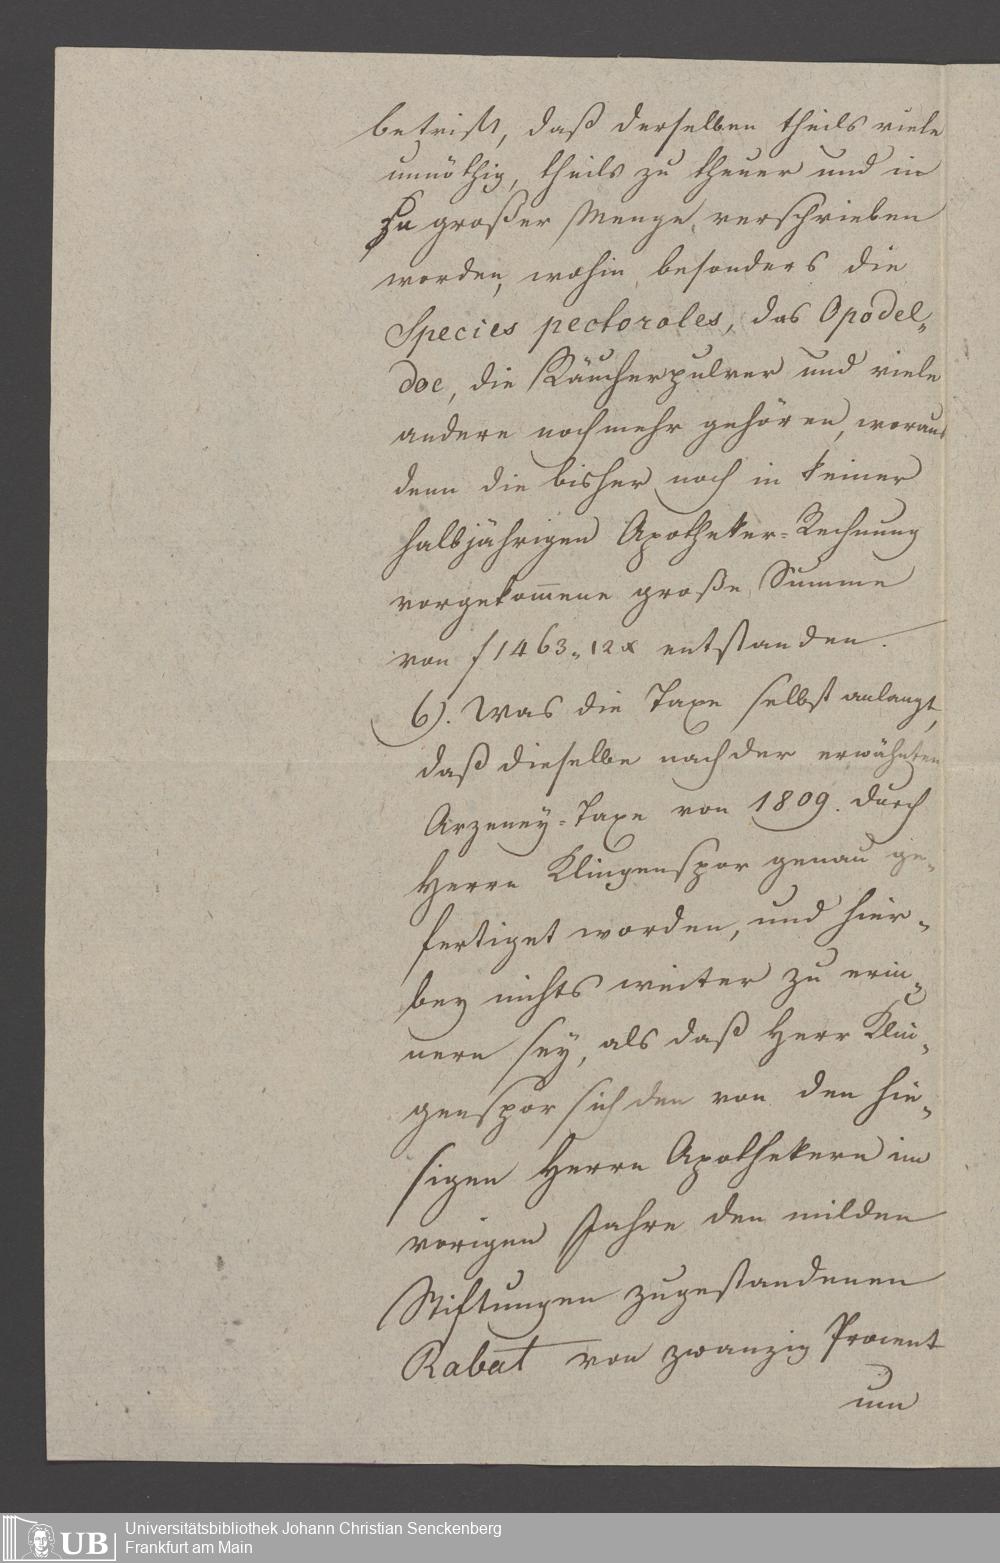 betrifft, daß derselben theils viele
unnöthig, theils zu theuer und in
zu großer Menge verschrieben
worden, wohin besonders die
Species pectorales, das Opodel„
doc, die Räucherpulver und viele
andere noch mehr gehören, woraus
denn die bisher noch in keiner
halbjährigen Apotheker-Rechnung
vorgekom̄ene große Summe
von f 1463„ 12 x entstanden.
6). Was die Taxe selbst anlangt,
daß dieselbe nach der erwähnten
Arzeney-Taxe von 1809. durch
Herrn Klingenspor genau ge„
fertiget worden, und hier„
bey nichts weiter zu erin„
nern sey, als daß Herr Klin„
genspor sich den von den hie„
sigen Herrn Apothekern im
vorigen Jahre den milden
Stiftungen zugestandenen
Rabat von zwanzig Procent
um
Universitätsbibliothek Johann Christian Senckenberg
Frankfurt am Main
UB